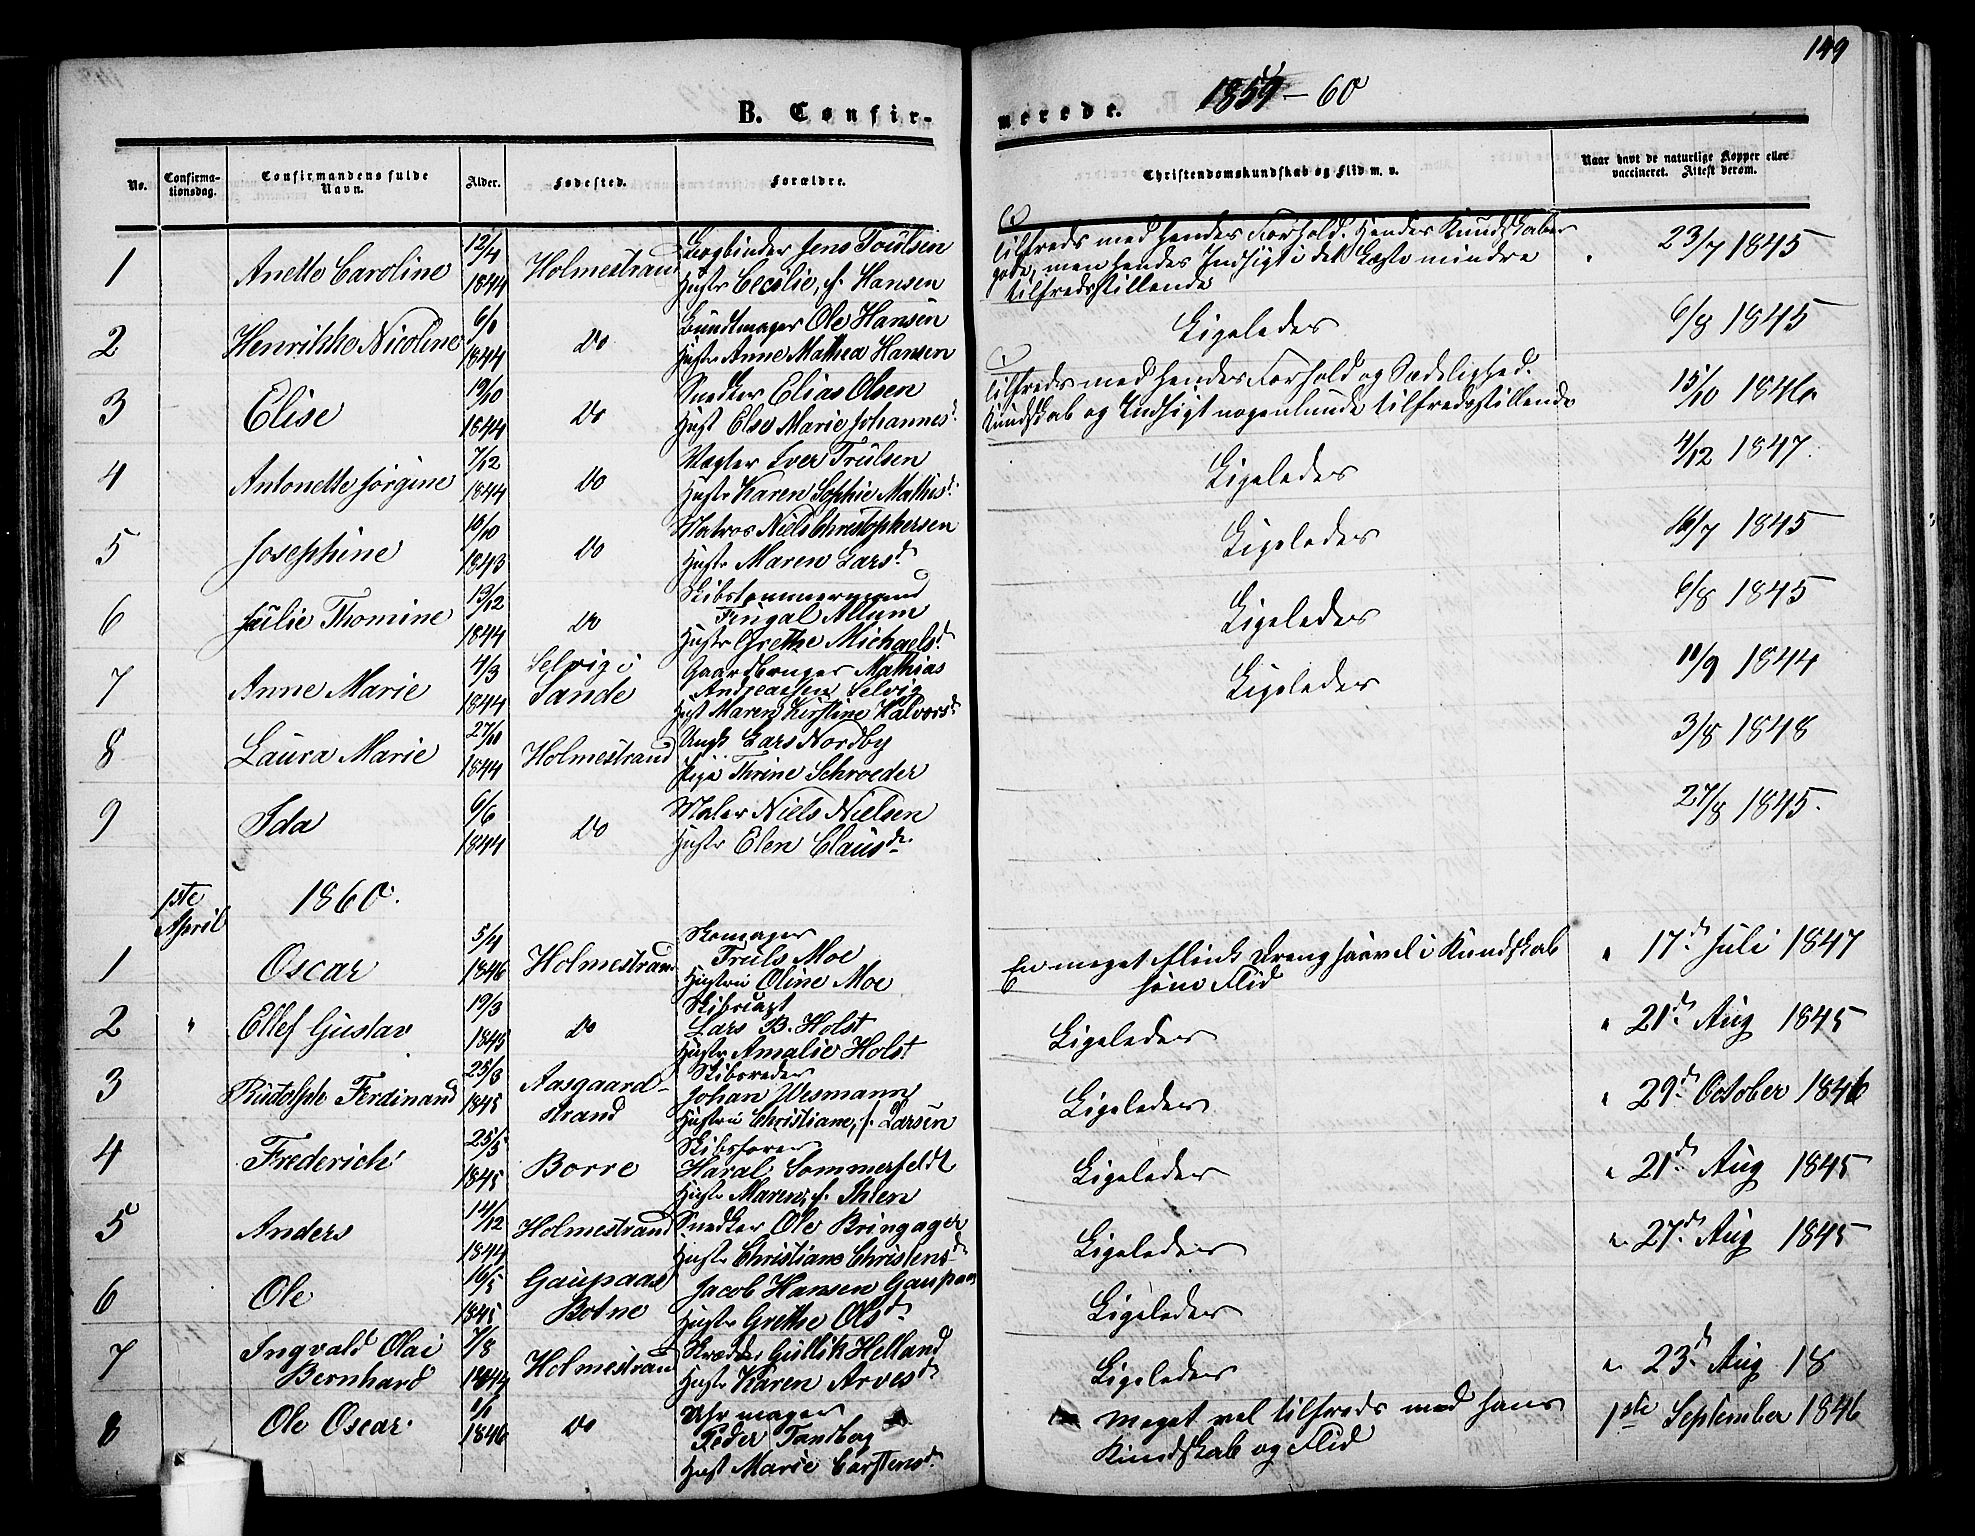 149
B. Confir-
merede. 1859-60
No.
Confirma-
tionsdag.
Confirmandens fulde
Navn.
Alder.
Fødested.
Forældre.
Christendomskundskab og Flid m. v.
Naar havt de naturlige Kopper eller
vaccineret. Attest derom.
1 Anette Caroline 12/4 1844 Holmestrand
Bogbinder Jens Toulsen
Hustr Cecilie, f. Hansen
Tilfreds med hendes Forhold. Hendes Kundskaber
gode, men hendes Indsigt i det Læste mindre
tilfredsstillende
23/7 1845
2 Henrikke Nicoline 6/6 1844 Do
Bundtmager Ole Hansen
Hustr Anne Mathea Hansen
Ligeledes
6/8 1845
3 Elise 19/10 1844 Do
Snedker Elias Olsen
Hust Else Marie Johannesd.
Tilfreds med hendes Forhold og Sædelighed.
Kundskab og Indsigt nogenlunde tilfredsstillende
15/10 1846
4 Antonette Jørgine 7/12 1844 Do
Vægter Iver Trulsen
Hustr Karen Sophie Mathisd.
Ligeledes
4/12 1847.
5 Josephine 10/10 1843 Do
Matros Niels Christophersen
Hustr Maren Larsd.
Ligeledes
16/7 1845
6 Julie Thomine 19/12 1844 Do
Skibstømmermand
Fingal Allum
Hustr Grethe Michaelsd.
Ligeledes
6/8 1845
7 Anne Marie 4/3 1844 Selvig i
Sande
Gaardbruger Mathias
Andreassen Selvig
Hust Maren Kirstine Halvorsd.
Ligeledes
11/9 1844
8 Laura Marie 27/10 1844 Holmestrand
Ungk Lars Nordby
Pige Thrine Schroeder
3/8 1848
9 Ida 6/6 1844 Do
Maler Niels Nielsen
Hustr Elen Clausd.
27/8 1845.
1ste
April
1860.
1 Oscar 5/4 1846 Holmestrand
Skomager
Truls Moe
Hustru Oline Moe
En meget flink Dreng saavel i Kundskab
som Flid
" 17d Juli 1847
2 " Ellef Gustav 19/3 1845 Do
Skibscapt
Lars B. Holst
Hustr Amalie Holst
Ligeledes
" 21d Aug 1845
3 Rudolph Ferdinand 25/3 1845 Aasgaard-
strand
Skibsreder
Johan Wesmann
Hustru Christiane, f. Larsen
Ligeledes
" 29d October 1846
4 Frederich 25/5 1845 Borre
Skibsfører
Haral Sommerfeldt
Hustr Maren, f. Thien
Ligeledes
" 21d Aug 1845
5 Anders 14/12 1844 Holmestrand
Snedker Ole Bringager
Hustr Christiane Christensd.
Ligeledes
" 27d Aug 1845
6 Ole 16/5 1845 Gaupaas
Botne
Jacob Hansen Gaupaas
Hustr Grethe Olsd
Ligeledes
7 Ingvald Olai
Bernhard 7/8 1844 Holmestrand
Skrædder Gullik Helland
Hustr Karen Arvesd
Ligeledes
" 23d Aug 18
8 Ole Oscar 1/1 1846 Do
Uhrmager
Peder Tandberg
Hust Marie Carstensd.
Meget vel tilfreds med hans
Kundskab og Flid
1ste September 1846